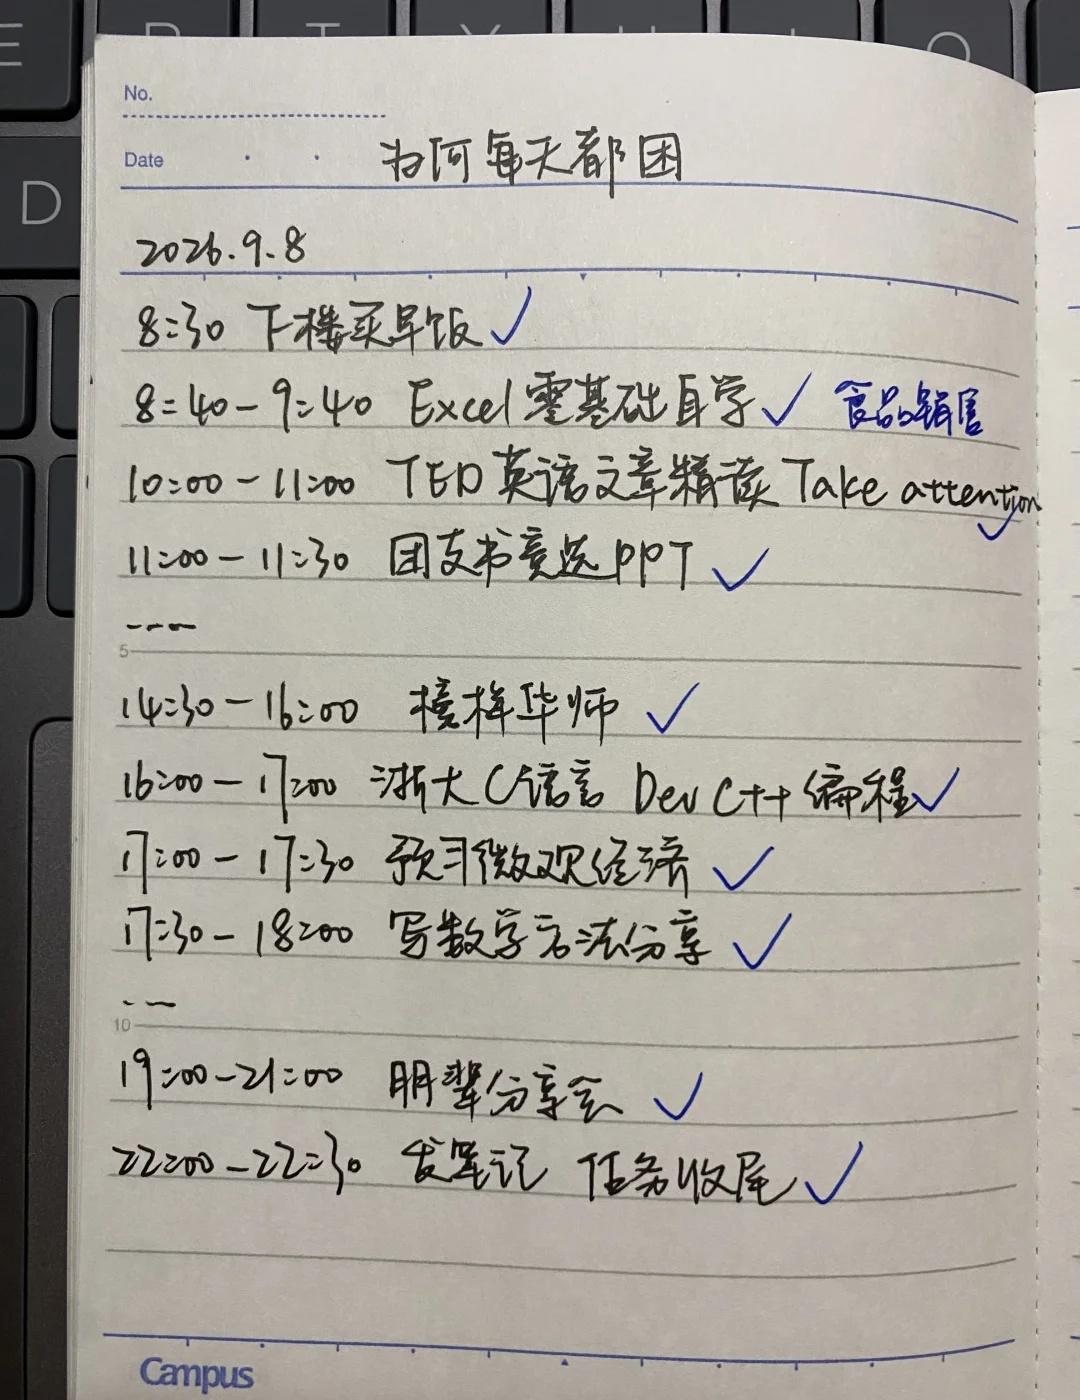 E R T Y U I O
D
No.
Date
为何每天都困
2026.9.8
8:30 下楼买早饭 ✓
8:40-9:40 Excel零基础自学 ✓ 食品销售
10:00-11:00 TED英语文章精读 Take attention ✓
11:00-11:30 团支书竞选PPT ✓
----
5
14:30-16:00 榜样华师 ✓
16:00-17:00 浙大C语言 Dev C++编程 ✓
17:00-17:30 预习微观经济 ✓
17:30-18:00 写数学方法分享 ✓
---
10
19:00-21:00 朋辈分享会 ✓
22:00-22:30 发笔记 任务收尾 ✓
Campus